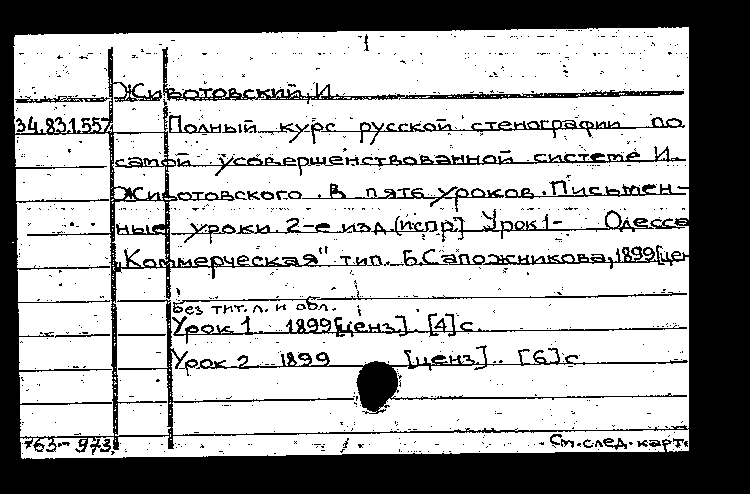 Животовский, И.
34.831.557 Полный курс русской стенографии по
самой усовершенствованной системе И.
Животовского. В пять уроков. Письмен-
ные уроки 2-е изд.(испр.] Урок 1- Одесса
„Коммерческая" тип. Б.Сапожникова, 1899[цен
Без тит. л. и обл.
Урок 1 1899[ценз]. [4]с.
Урок 2 1899 [ценз].. [6]с.
763-973. См.след.карт